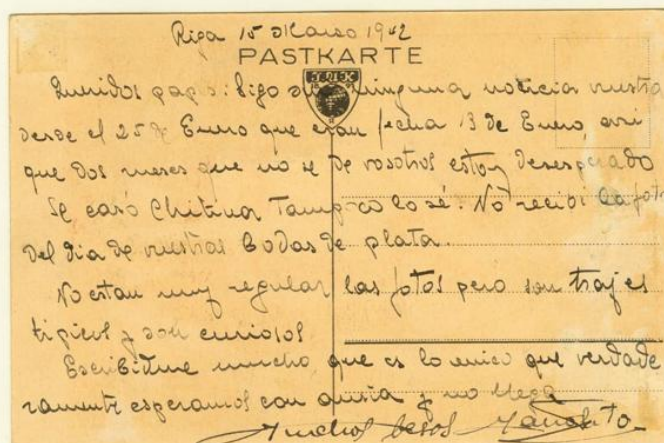 Riga 15 Marzo 1942
PASTKARTE
Queridos papás: Sigo sin ninguna noticia vuestra
desde el 25 de Enero que eran fecha 13 de Enero, casi
que dos meses que no se de vosotros estoy desesperado
Se casó Chitina Tampoco lo sé. No recibi la foto
del dia de vuestras bodas de plata.
No estan muy regular las fotos pero son trajes
tipicos y son curiosos
Escribidme mucho, que es lo unico que verdade
ramente esperamos con ansia y no llega
Muchos besos Manolito